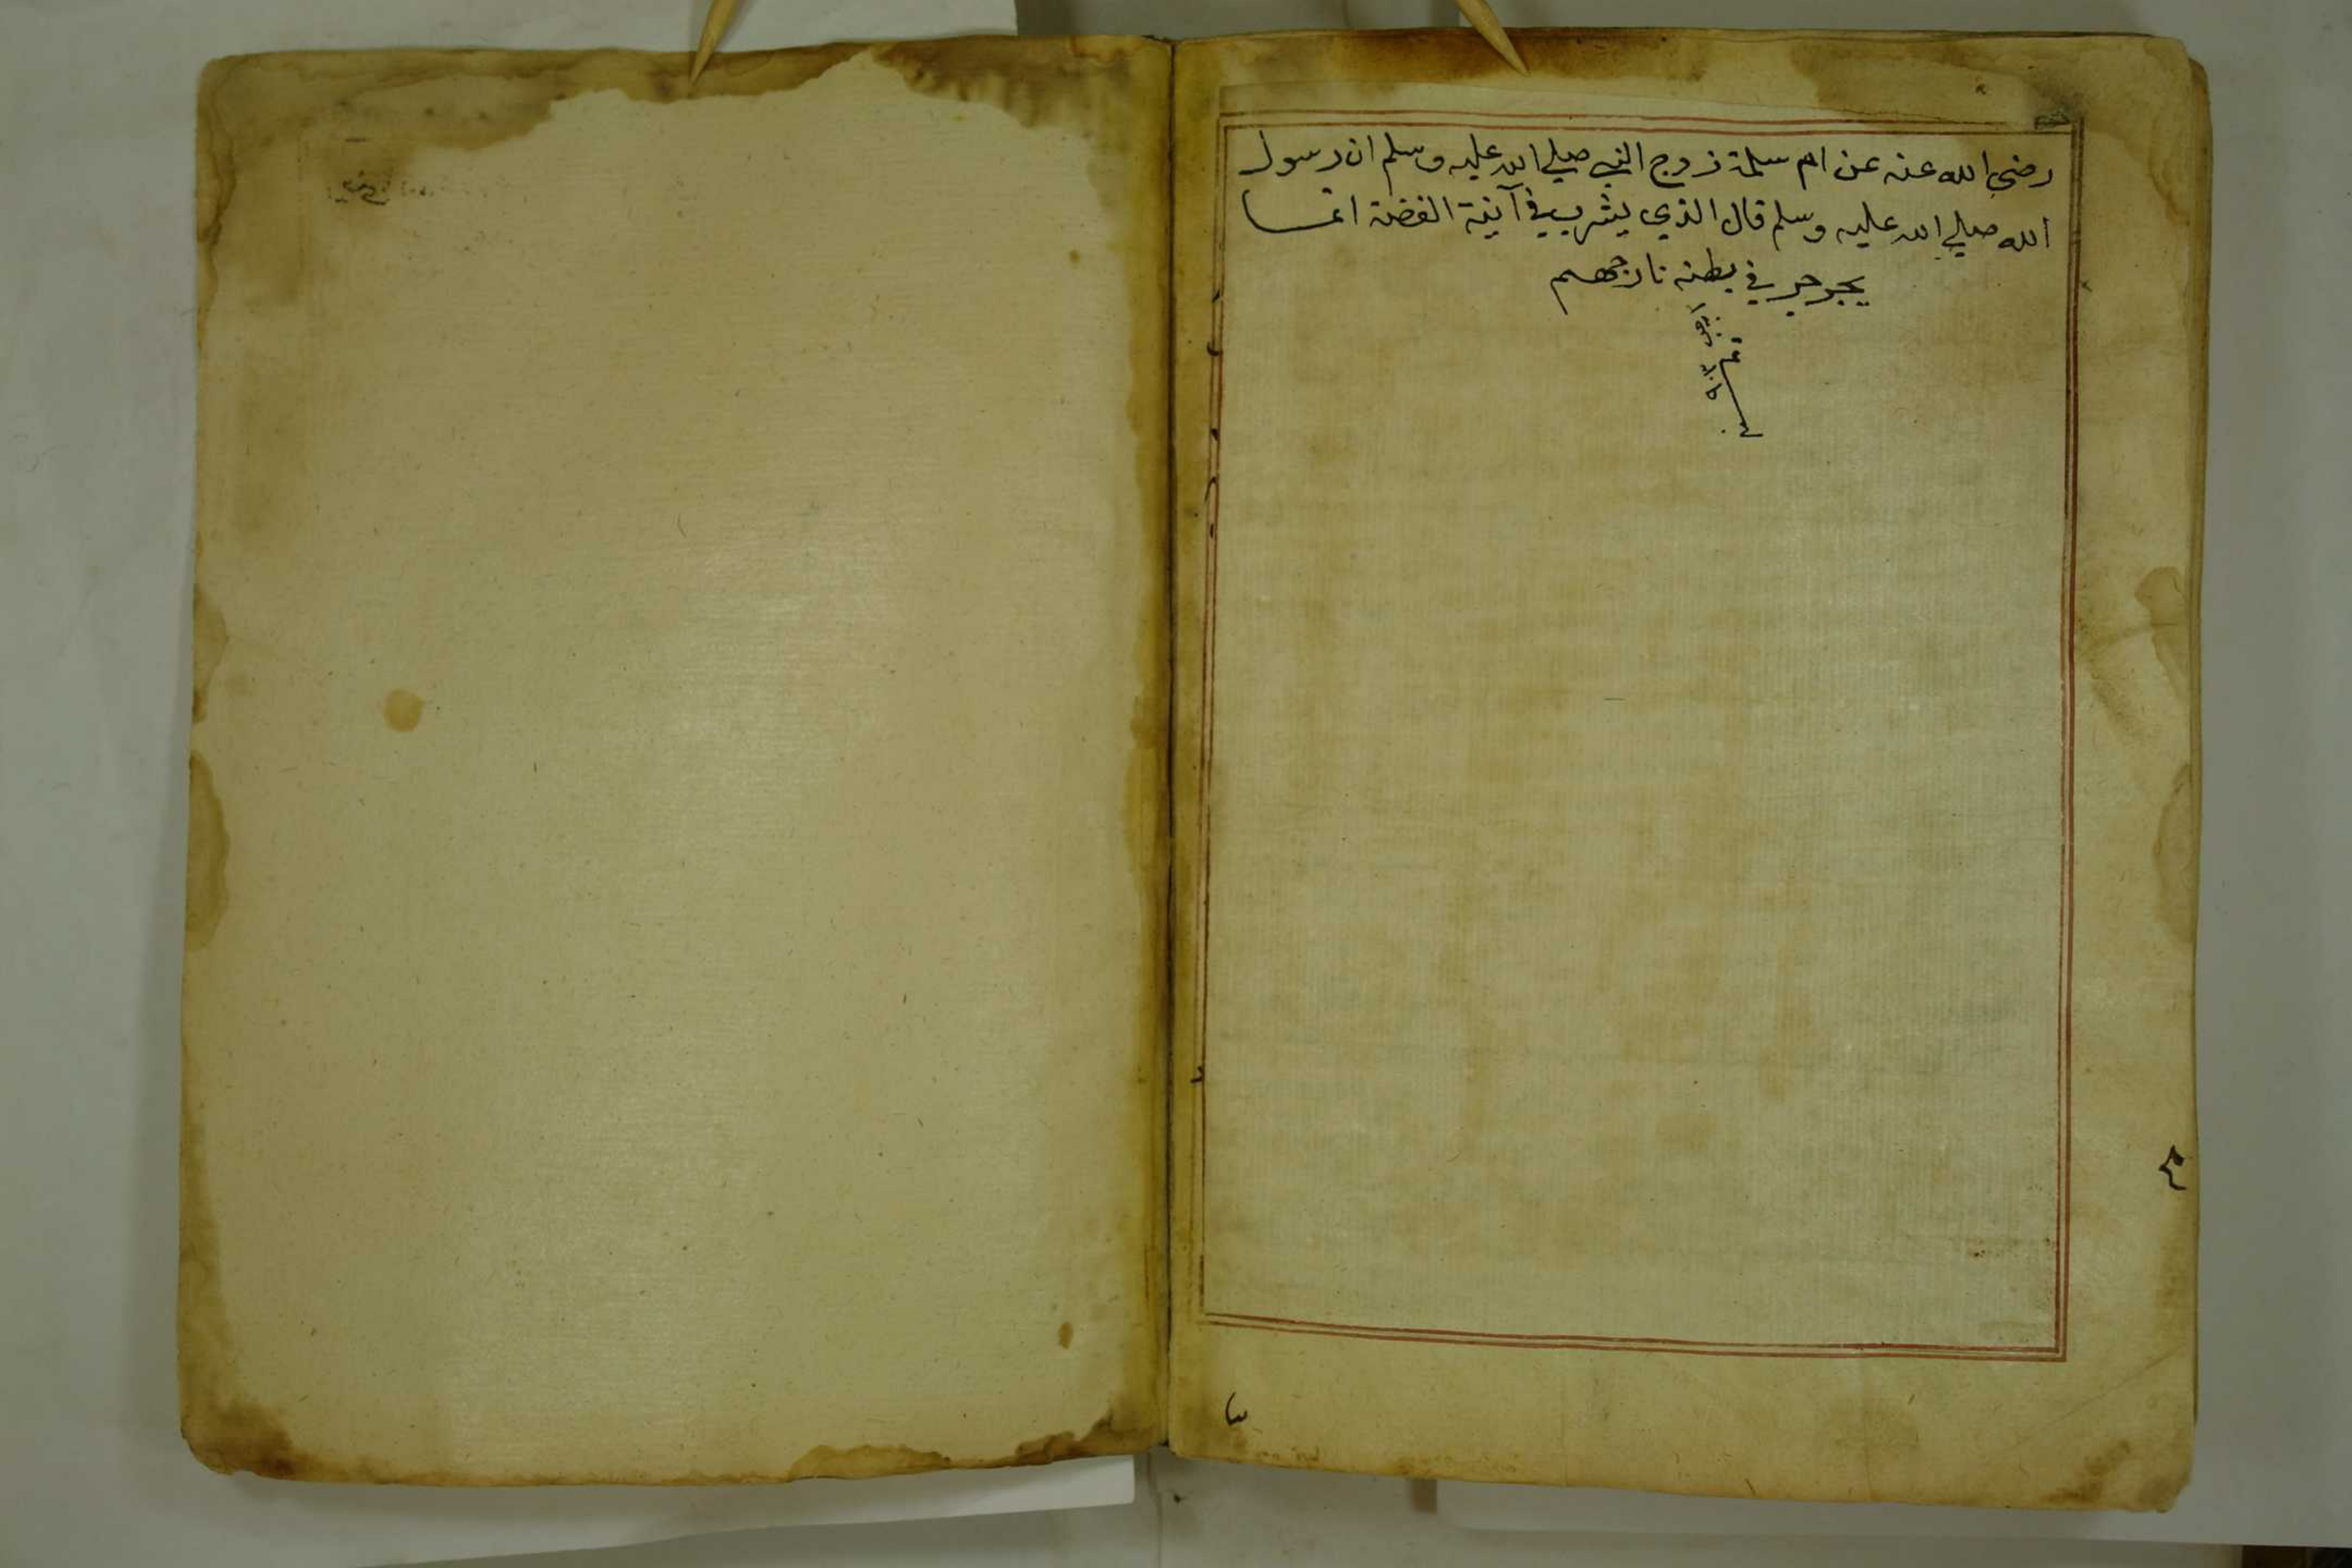 رضي الله عنه عن ام سلمة زوج النبي صلي الله عليه وسلم ان رسول
الله صلي الله عليه وسلم قال الذي يشرب في آنية الفضة انما
يجرجر في بطنه نار جهنم
تم